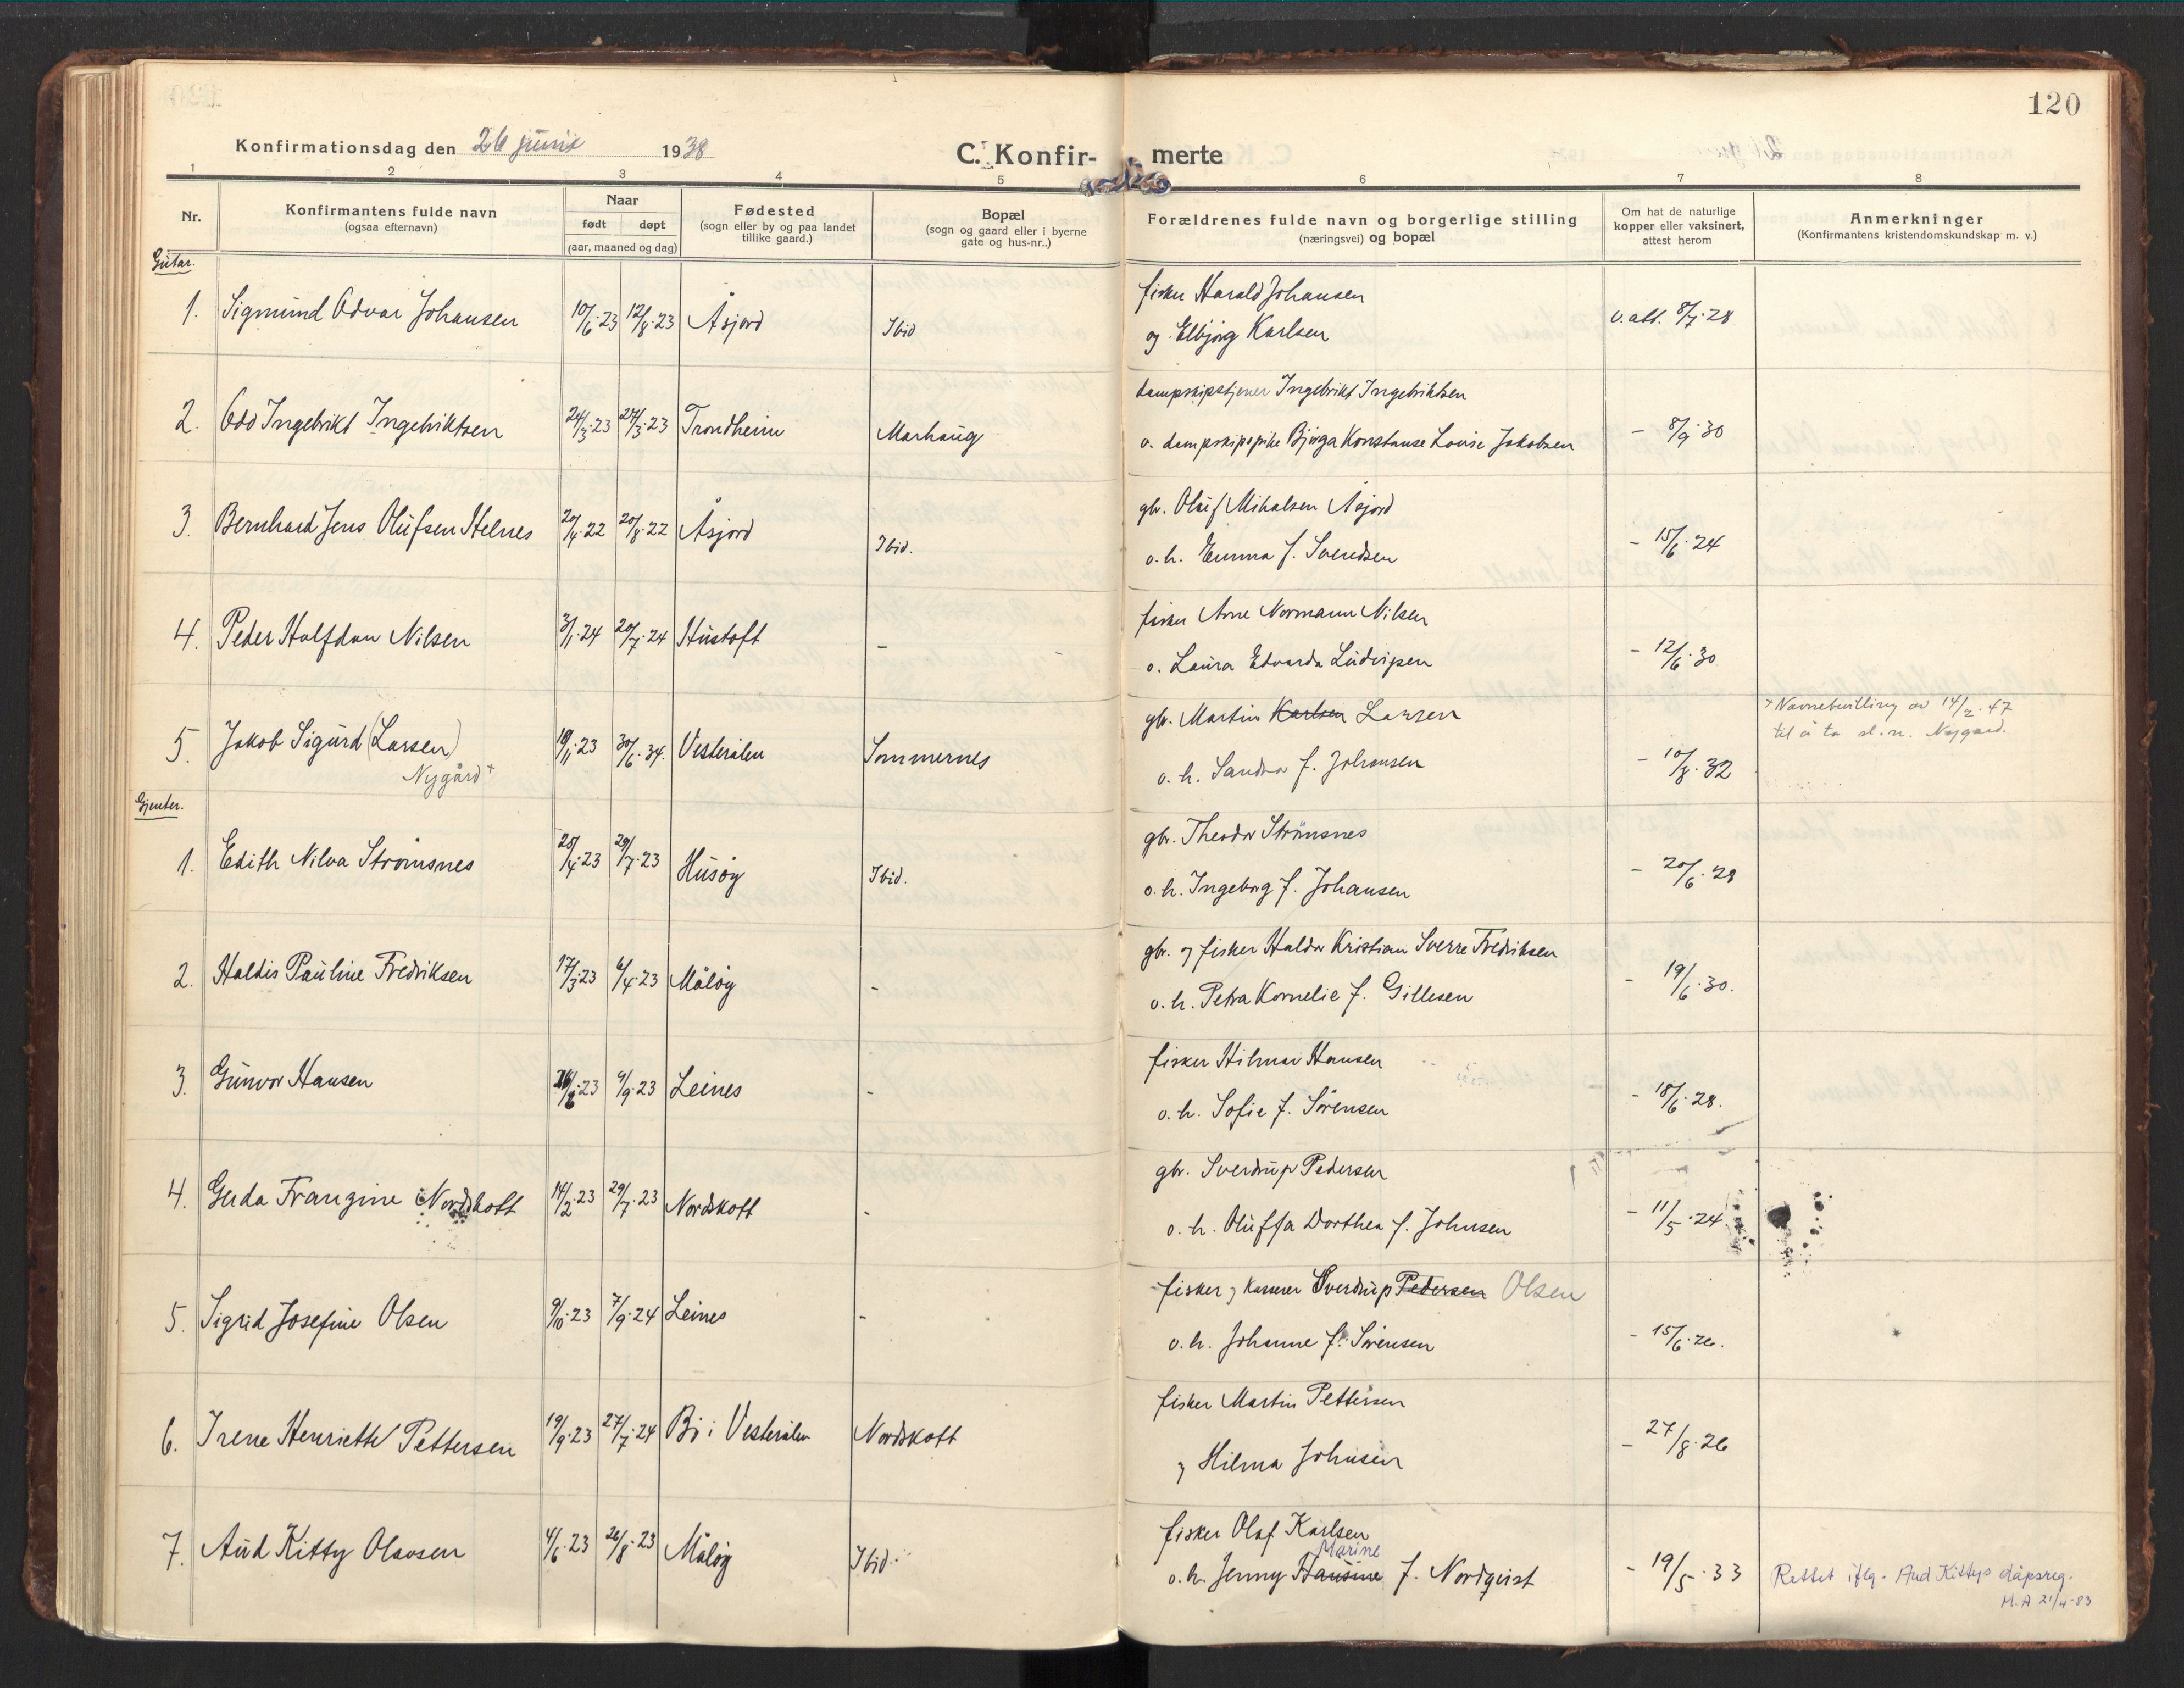 120
Konfirmationsdag den 26 juni 1938
C. Konfir- merte
1 2 3 4 5 6 7 8
Nr.
Konfirmantens fulde navn
(ogsaa efternavn)
Naar
født døpt
(aar, maaned og dag)
Fødested
(sogn eller by og paa landet
tillike gaard.)
Bopæl
(sogn og gaard eller i byerne
gate og hus-nr..)
Forældrenes fulde navn og borgerlige stilling
(næringsvei) og bopæl
Om hat de naturlige
kopper eller vaksinert,
attest herom
Anmerkninger
(Konfirmantens kristendomskundskap m. v.)
Gutar.
1. Sigmund Odvar Johansen 10/6·23 12/8·23 Åsjord Ibid
fisker Harald Johansen
og Elbjørg Karlsen
v.att. 8/7·28
2. Odd Ingebrikt Ingebriktsen 24/3·23 27/3·23 Trondheim Marhaug
dampskipstjener Ingebrikt Ingebriktsen
o. dampskipspike Bjørga Konstanse Louise Jakobsen
- 8/9·30
3. Bernhard Jens Olufsen Helnes 20/4·22 20/8·22 Åsjord Ibid.
gbr. Oluf Mikalsen Åsjord
o. h. Emma f. Svendsen
- 15/6·24
4. Peder Halfdan Nilsen 3/1·24 20/7·24 Hustoft -
fisker Arne Normann Nilsen
o. Laura Edvarda Ludvigsen
- 12/6·30
5. Jakob Sigurd (Larsen) 19/11·23 30/6·34. Vesterålen Sommernes
Nygård +
gbr. Martin Karlsen Larsen
o. h. Sandra f. Johansen
- 10/8·32
+ Navnebevilling av 14/2·47
til å ta sl.n. Nygård.
Gjenter.
1. Edith Nilva Strømsnes 28/4·23 29/7·23 Husøy Ibid.
gbr. Theodor Strømsnes
o. h. Ingeborg f. Johansen
- 20/6·28
2. Haldis Pauline Fredriksen 17/3·23 6/4·23 Måløy -
gbr. og fisker Haldor Kristian Sverre Fredriksen
o. h. Petra Kornelie f. Gillesen
- 19/6·30.
3. Gunvor Hansen 26/6·23 9/9·23 Leines -
fisker Hilmar Hansen
o. h. Sofie f. Sørensen
- 18/6·28.
4. Guda Franzine Nordskott 14/2·23 29/7·23 Nordskott -
gbr. Sverdrup Pedersen
o. h. Oluffa Dorthea f. Johnsen
- 11/5·24
5. Sigrid Josefine Olsen 9/10·23 7/9·24 Leines -
fisker og kasserer Sverdrup Pedersen Olsen
o. h. Johanne f. Sørensen
- 15/6·26.
6. Irene Henriette Pettersen 19/9·23 27/7·24 Bø i Vesterålen Nordskott
fisker Martin Pettersen
og Hilma Johnsen
- 27/8·26
7. Aud Kitty Olavsen 4/6·23 26/8·23 Måløy Ibid
fisker Olaf Karlsen
Marine
o. h. Jenny Hansine f. Nordqvist
- 19/5·33
Rettet iflg. Aud Kittys dåpsreg.
M.A 21/4-83